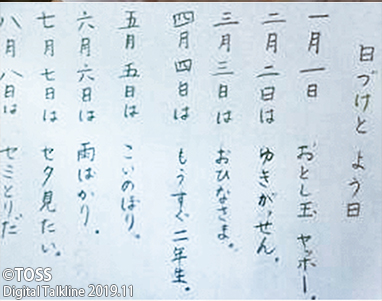 日づけと よう日
一月 一日 おとし玉 ヤッホー。
二月 二日は ゆきがっせん。
三月 三日は おひなさま。
四月 四日は もうすぐ二年生。
五月 五日は こいのぼり。
六月 六日は 雨ばかり。
七月 七日は セタ見たい。
八月 八日は セミとりだ
©TOSS
Digital Talkline 2019.11